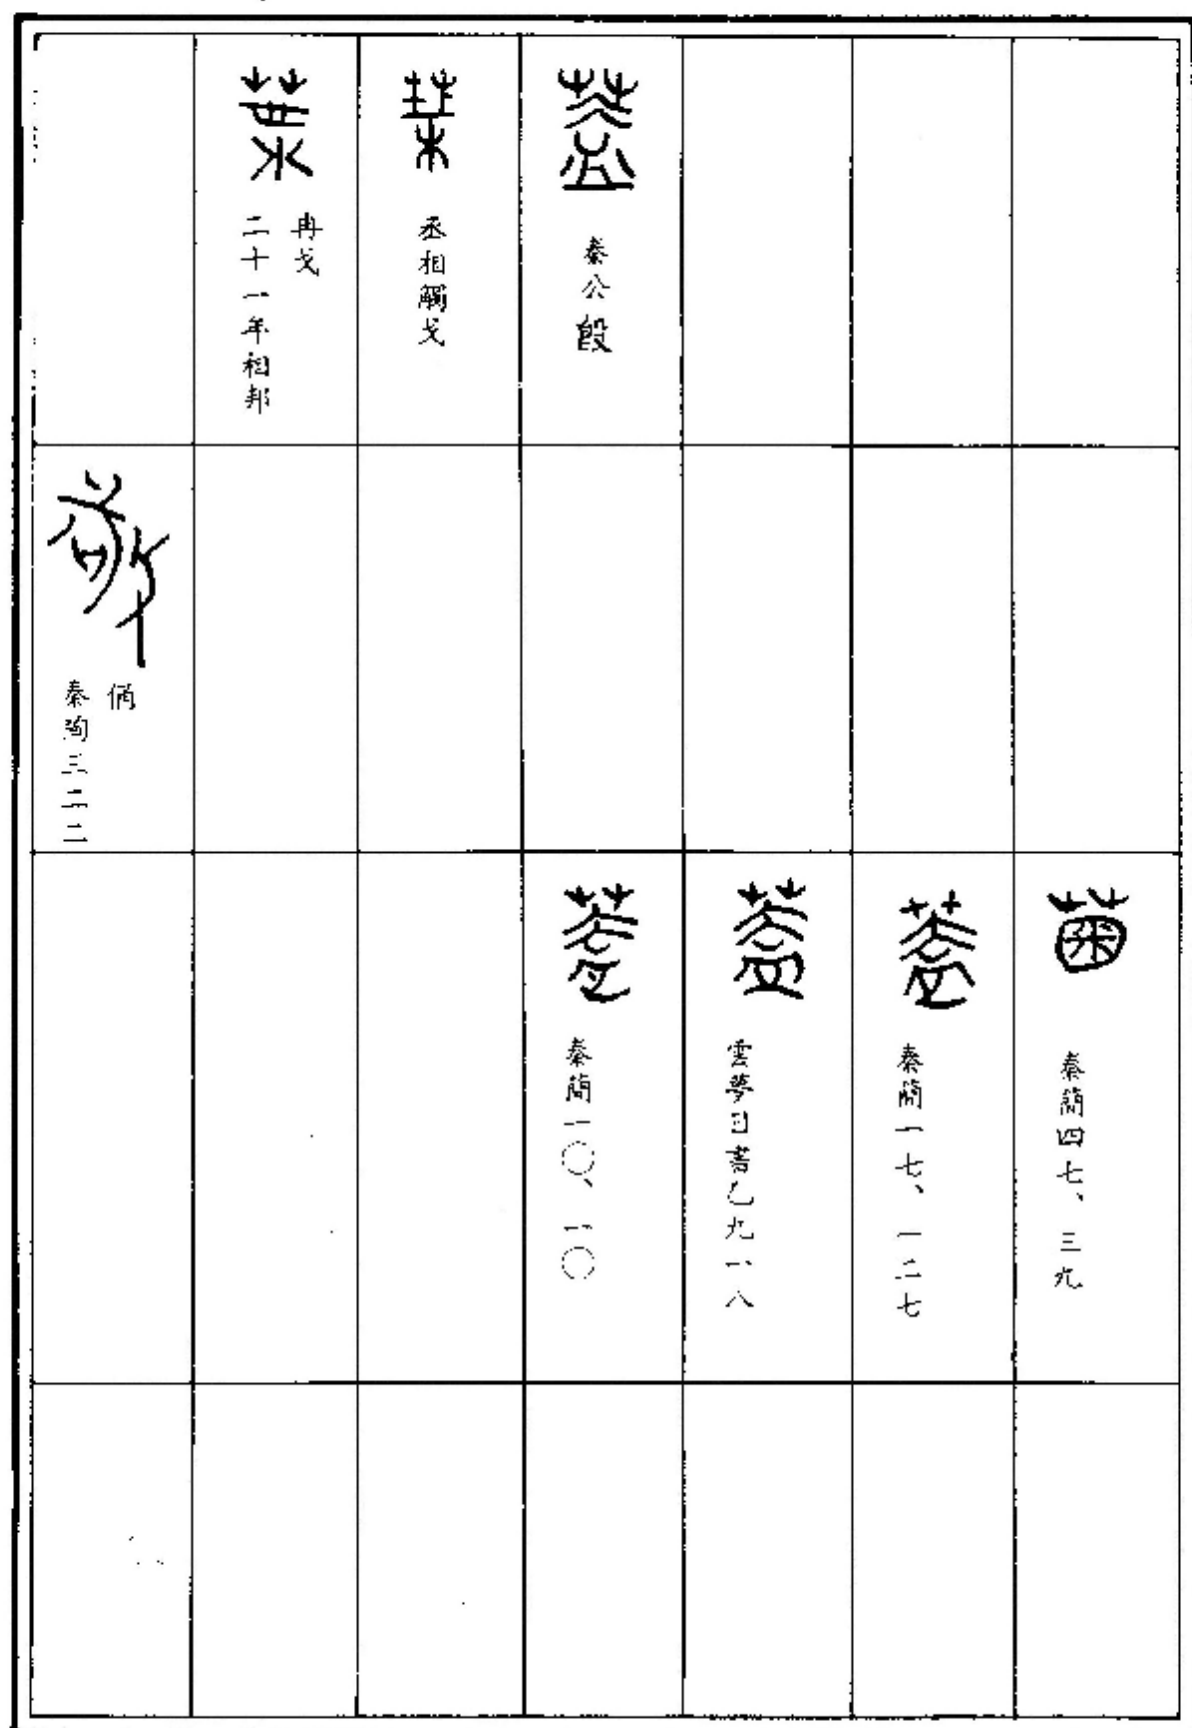 蓋
秦公𣪘
葉
丞相觸戈
葉
二十一年相邦
冉戈
敬
秦陶三二二
俑
菌
秦簡四七、三九
蓋
秦簡一七、一二七
蓋
雲夢日書乙九一八
蓋
秦簡一〇、一〇